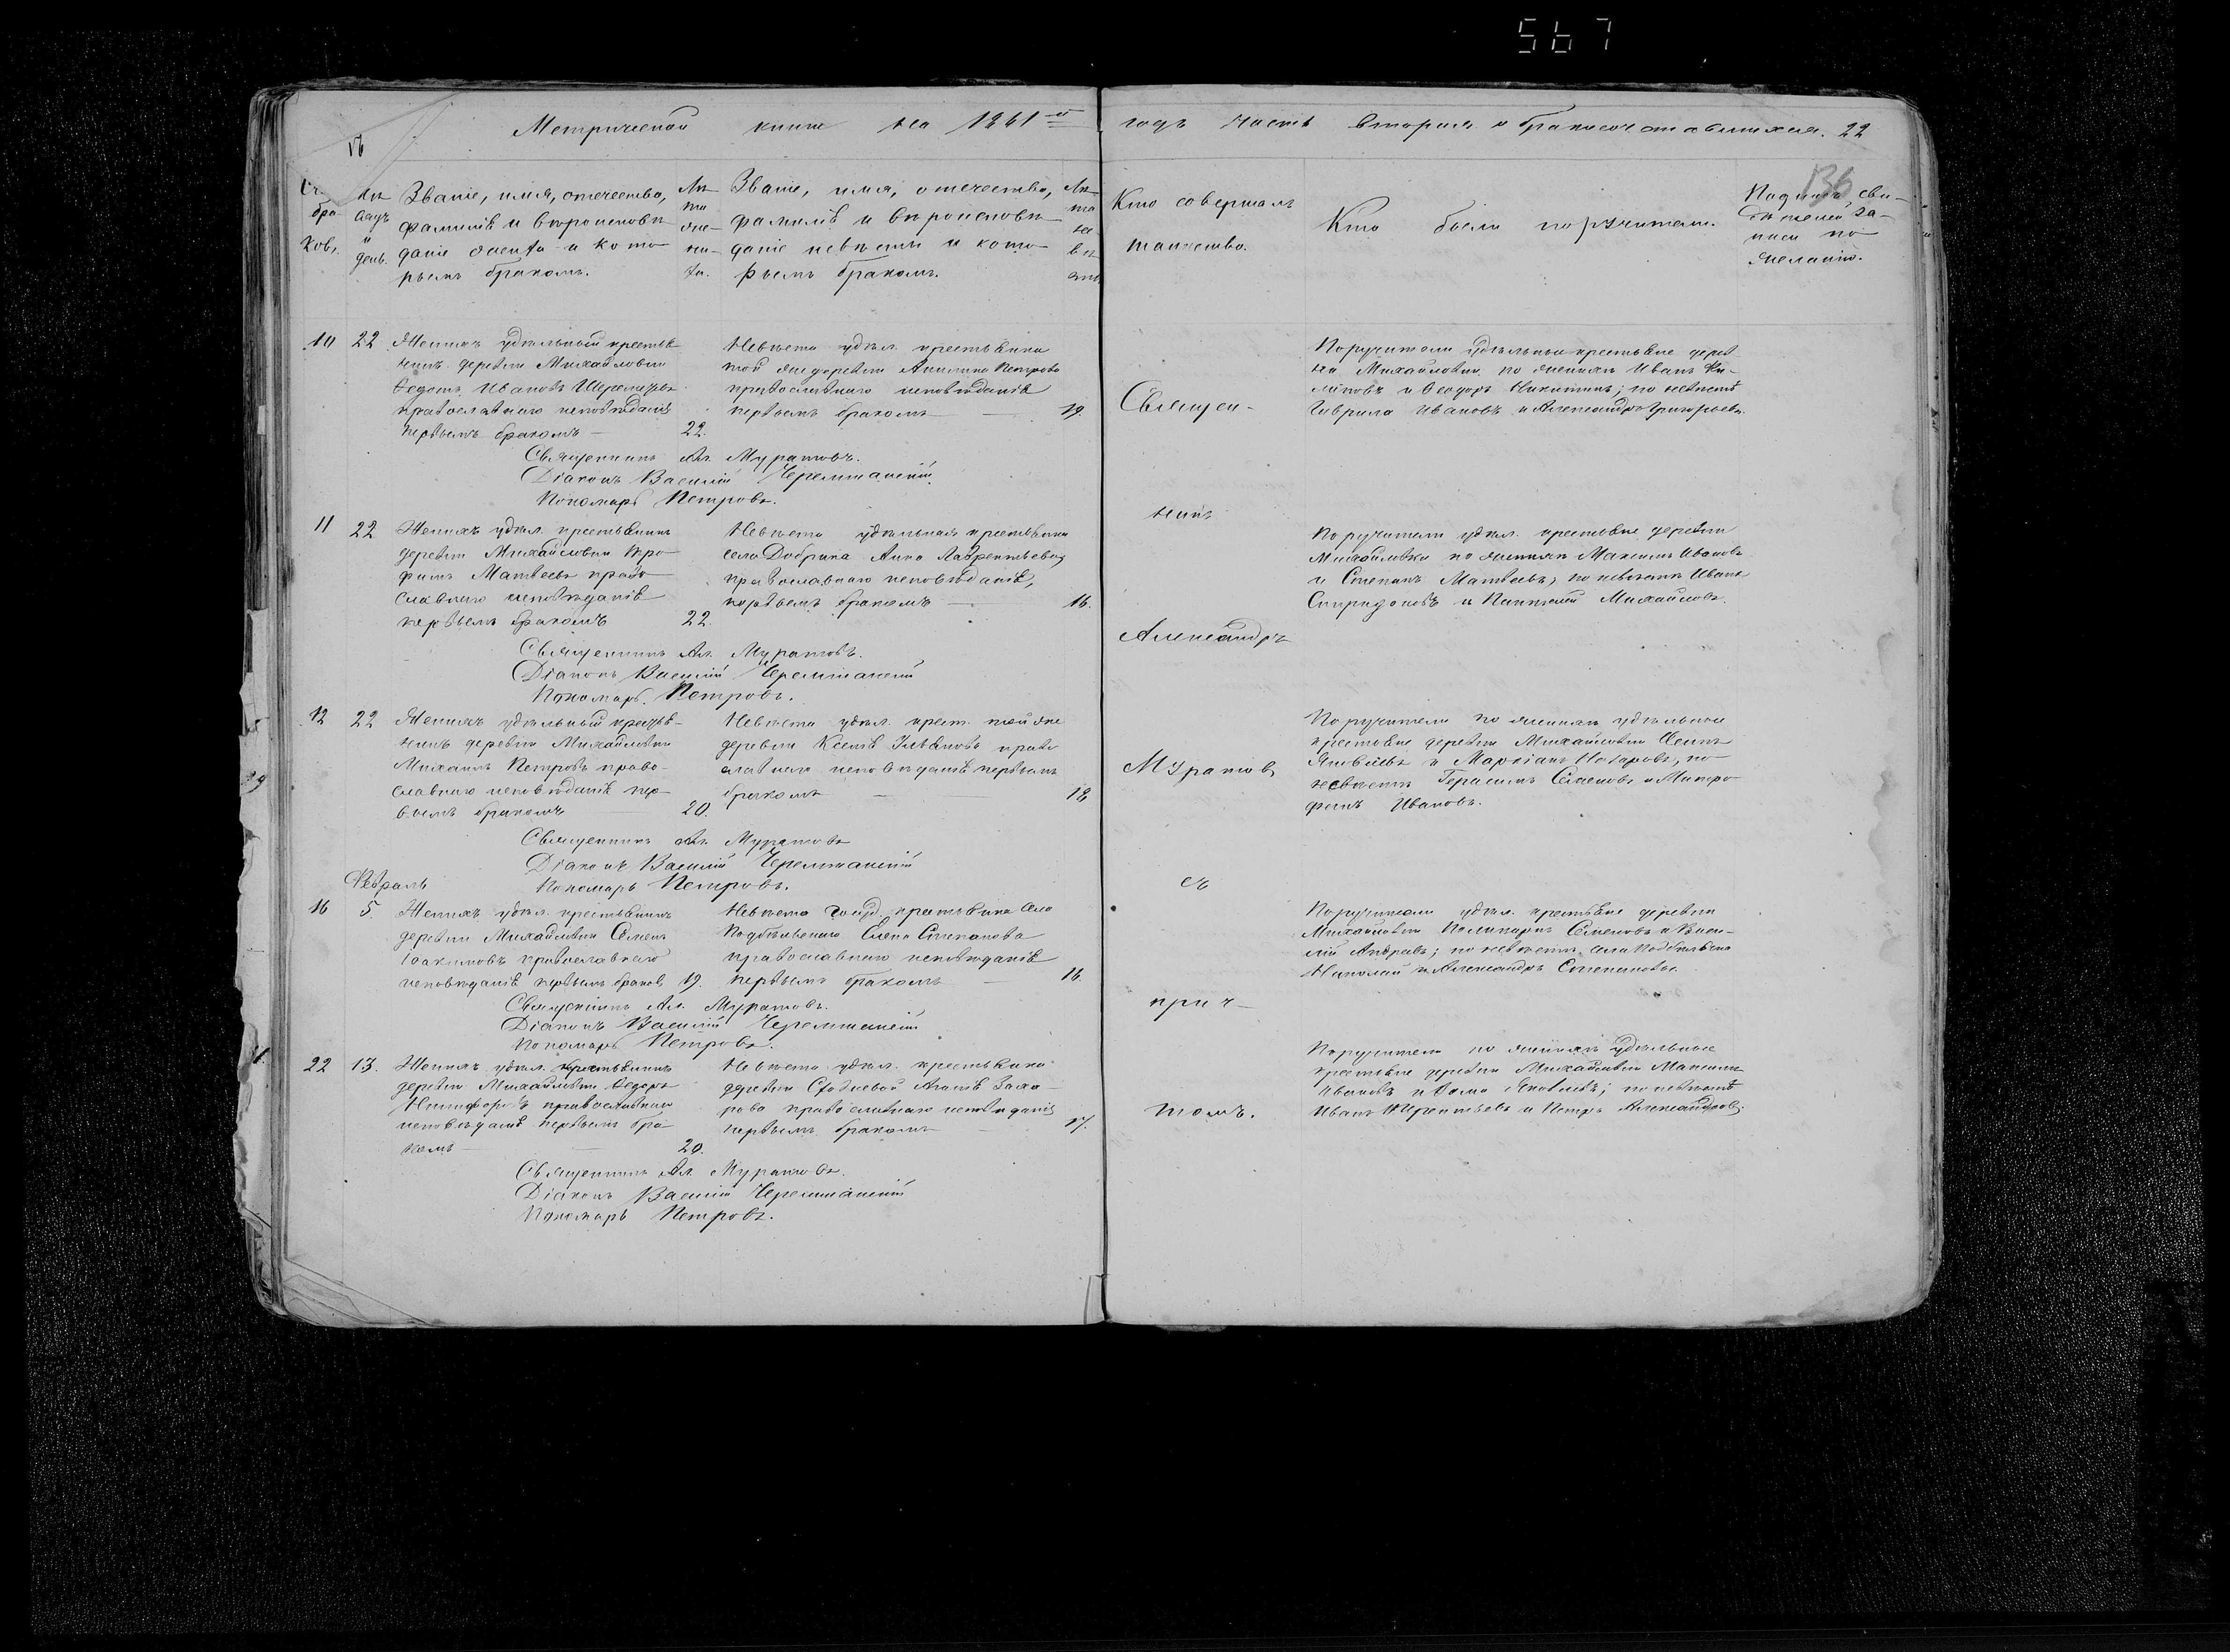 567
Метрической книги на 1861й годъ часть вторая о бракосочетавшихся. 22
136
бра-
ковъ.
и
день.
Званіе, имя, отчество,
фамилія и вѣроисповѣ-
даніе жениха и кото-
рымъ бракомъ.
Лѣ-
та
же-
ни-
ха.
Званіе, имя, отчество,
фамилія и вѣроисповѣ-
даніе невѣсты и кото-
рымъ бракомъ.
Лѣ-
та
не
вѣ
сты.
Кто совершалъ
таинство.
Кто были поручители.
Подпись сви-
дѣтелей за-
писи по
желанію.
10 22
Женихъ удѣльный крестья-
нинъ деревни Михайловки
Ѳедотъ Ивановъ
православнаго исповѣданія
первымъ бракомъ — 22.
Невѣста удѣл. крестьянка
той же деревни Акилина Петрова
православнаго исповѣданія
первымъ бракомъ — 19.
Поручители удѣльные крестьяне дерев-
ни Михайловки по женихѣ Иванъ Фи-
липовъ и Ѳеодоръ Никитинъ; по невѣстѣ
Гаврила Ивановъ и Александръ Григорьевъ.
Священникъ Ал. Муратовъ.
Діаконъ Василій Черемшанскій.
Пономарь Петровъ.
11 22
Женихъ удѣл. крестьянинъ
деревни Михайловки Тро-
фимъ Матвеевъ право-
славнаго исповѣданія
первымъ бракомъ 22.
Невѣста удѣльная крестьянка
села Добрина Анна Лаврентьева,
православнаго исповѣданія,
первымъ бракомъ — 16.
Поручители удѣл. крестьяне деревни
Михайловки по женихѣ Максимъ Ивановъ
и Степанъ Матвеевъ; по невѣстѣ Иванъ
Спиридоновъ и Пантелей Михайловъ.
Священникъ Ал. Муратовъ.
Діаконъ Василій Черемшанскій
Пономарь Петровъ.
12 22
Женихъ удѣльный крестья-
нинъ деревни Михайловки
Михаилъ Петровъ право-
славнаго исповѣданія пер-
вымъ бракомъ — 20.
Невѣста удѣл. крест. той же
деревни Ксенія Ульянова право
славнаго исповѣданія первымъ
бракомъ — 18
Поручители по женихѣ удѣльные
крестьяне деревни Михайловки
Яковлевъ и Маркіанъ Назаровъ, по
невѣстѣ Герасимъ Семеновъ и Митро
фанъ Ивановъ.
Священникъ Ал. Муратовъ
Діаконъ Василій Черемшанскій
Пономарь Петровъ.
Февраль
16 5
Женихъ удѣл. крестьянинъ
деревни Михайловки Семенъ
Іоакимовъ православнаго
исповѣданія первымъ браком 19.
Невѣста госуд. крестьянка села
Подбѣльскаго Елена Степанова
православнаго исповѣданія
первымъ бракомъ — 16.
Поручители удѣл. крестьяне деревни
Михайловки Поликарпъ Семеновъ и Васи-
лій Андреевъ; по невѣстѣ села Подбѣльска
Николай и Александръ Степановы.
Священникъ Ал. Муратовъ.
Діаконъ Василій Черемшанскій
Пономарь Петровъ.
22 13.
Женихъ удѣл. крестьянинъ
деревни Михайловки Ѳедоръ
Никифоровъ православнаго
исповѣданія первымъ бра-
комъ — 20.
Невѣста удѣл. крестьянка
деревни Агапія Заха-
рова православнаго исповѣданія
первымъ бракомъ — 17.
Поручители по женихѣ удѣльные
крестьяне деревни Михайловки Максимъ
Ивановъ и Ѳома Яковлевъ; по невѣстѣ
Иванъ и Петръ Александровъ.
Священникъ Ал. Муратовъ.
Діаконъ Василій Черемшанскій
Пономарь Петровъ.
Священ-
никъ
Александръ
Муратовъ
съ
прич-
томъ.